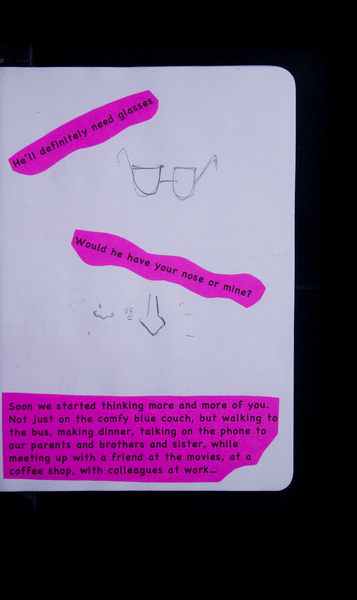 He'll definitely need glasses
Would he have your nose or mine?
vs
Soon we started thinking more and more of you.
Not just on the comfy blue couch, but walking to
the bus, making dinner, talking on the phone to
our parents and brothers and sister, while
meeting up with a friend at the movies, at a
coffee shop, with colleagues at work...